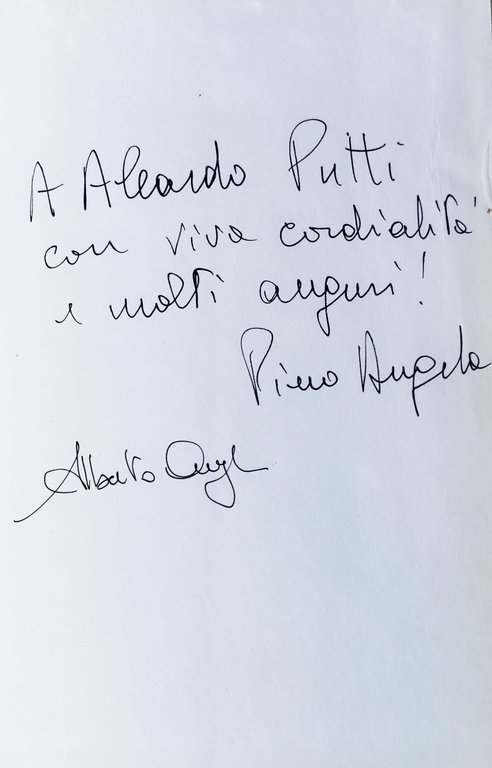 A Aleardo Putti
con viva cordialità
e molti auguri!
Piero Angela
Alberto Angela